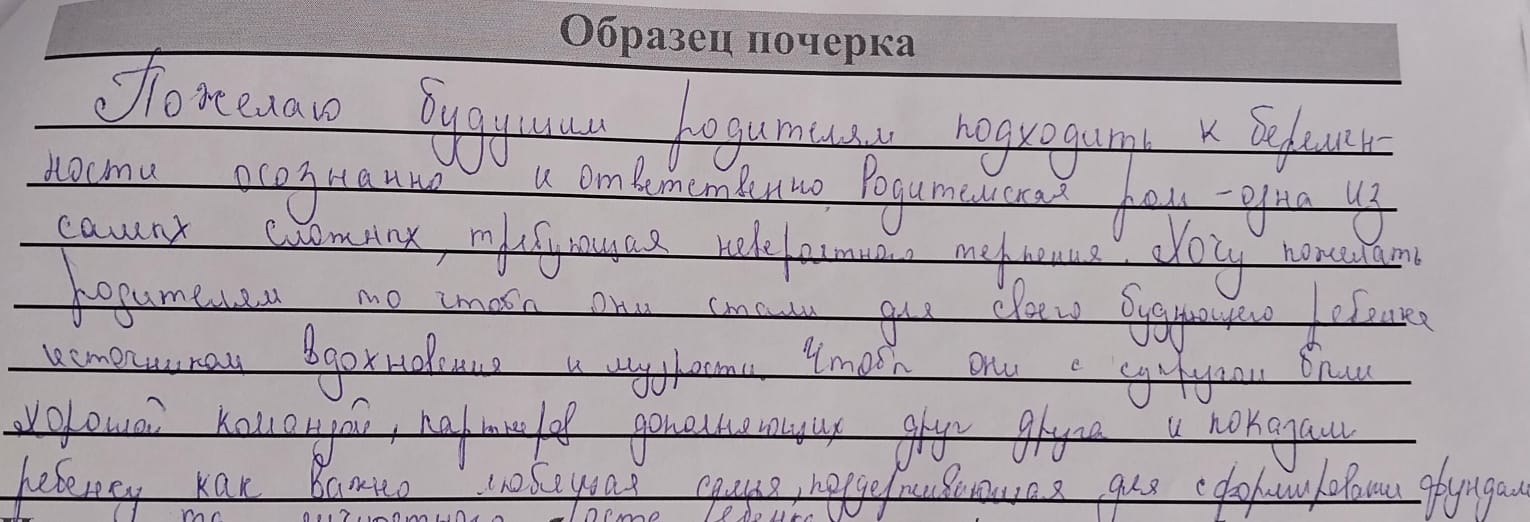 Образец почерка
Пожелаю будущим родителям подходить к беремен-
ности осознанно и ответственно. Родительская роль - одна из
самых сложных, требующая невероятного терпения. Хочу пожелать
родителям то чтобы они стали для своего будующего ребенка
источником вдохновения и мудрости. Чтобы они с супругом были
хорошей командой, партнеров дополняющих друг друга и показали
ребенку как важно любящая семья, поддерживающая для сформировати фундам